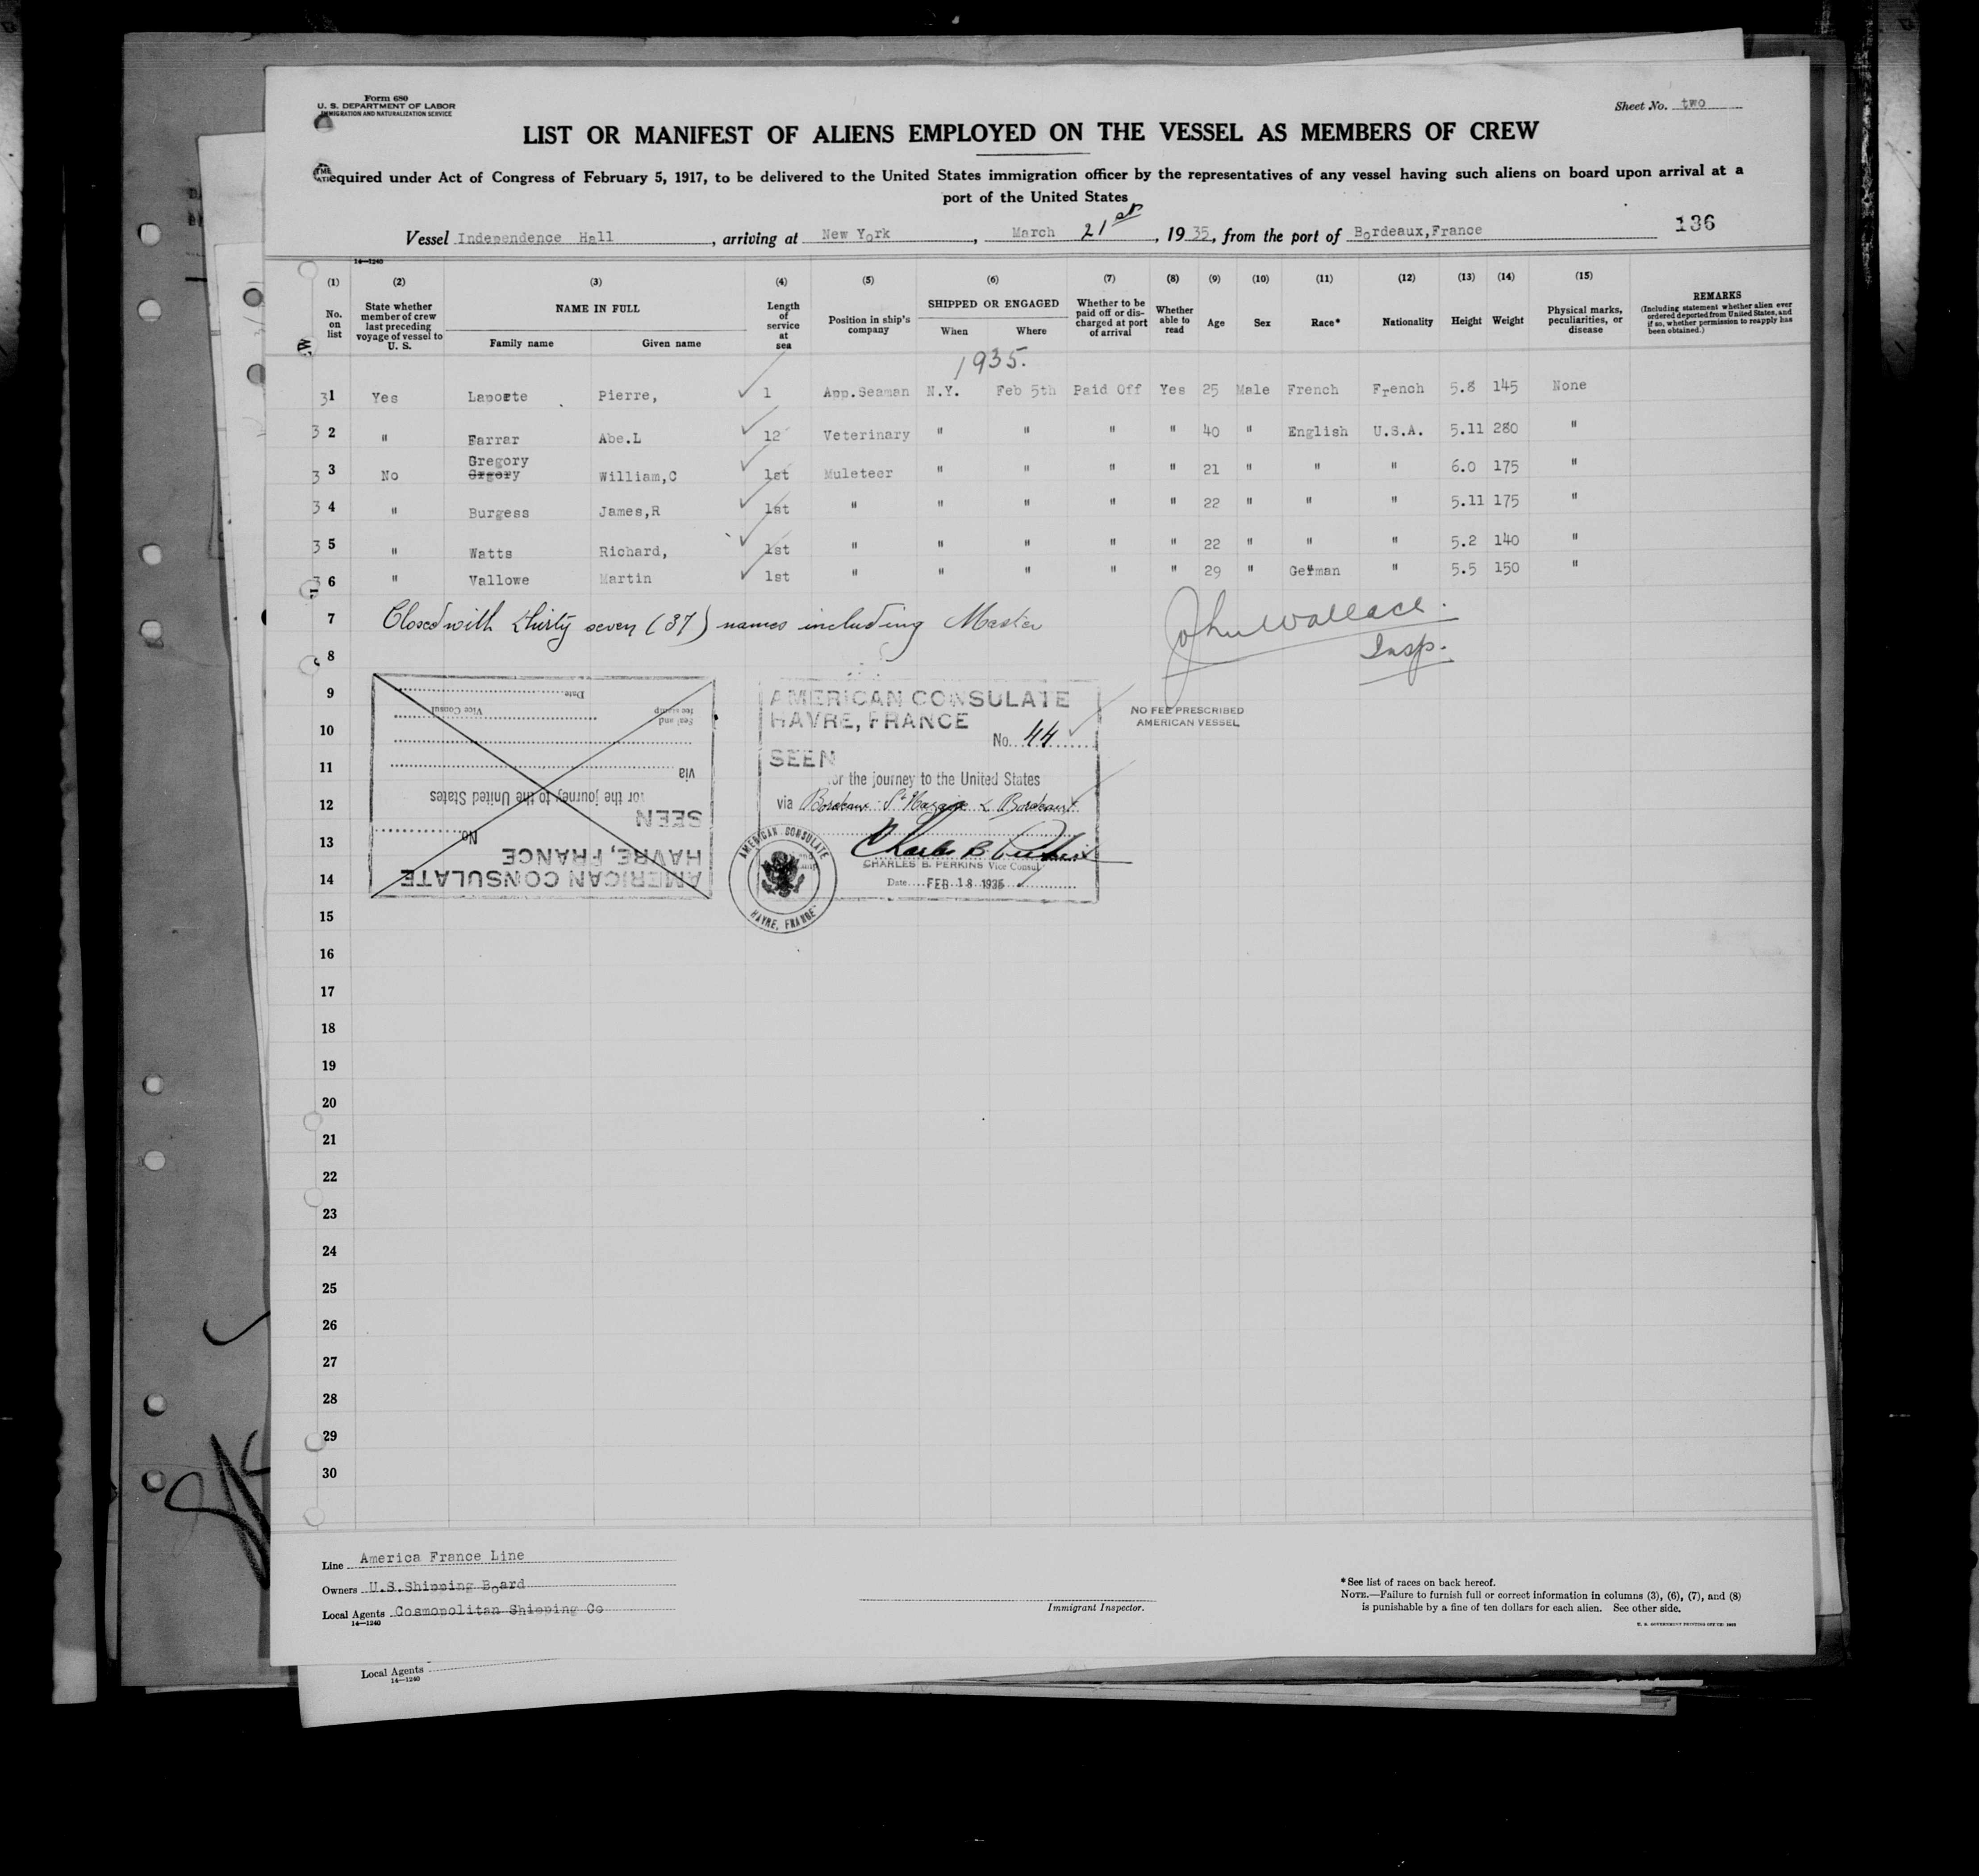 Form 680
U. S. DEPARTMENT OF LABOR
IMMIGRATION AND NATURALIZATION SERVICE
Sheet No. two
LIST OR MANIFEST OF ALIENS EMPLOYED ON THE VESSEL AS MEMBERS OF CREW
equired under Act of Congress of February 5, 1917, to be delivered to the United States immigration officer by the representatives of any vessel having such aliens on board upon arrival at a
port of the United States
Vessel Independence Hall, arriving at New York, March 21st, 1935, from the port of Bordeaux,France 136
14—1240
(1) (2) (3) (4) (5) (6) (7) (8) (9) (10) (11) (12) (13) (14) (15)
No. on list
State whether member of crew last preceding voyage of vessel to U. S.
NAME IN FULL
Family name Given name
Length of service at sea
Position in ship's company
SHIPPED OR ENGAGED
When Where
Whether to be paid off or discharged at port of arrival
Whether able to read
Age Sex Race* Nationality Height Weight
Physical marks, peculiarities, or disease
REMARKS
(Including statement whether alien ever ordered deported from United States, and if so, whether permission to reapply has been obtained.)
1935.
31 Yes Laporte Pierre, 1 App.Seaman N.Y. Feb 5th Paid Off Yes 25 Male French French 5.8 145 None
32 " Farrar Abe.L 12 Veterinary " " " " 40 " English U.S.A. 5.11 280 "
Gregory
33 No Grgory William,C 1st Muleteer " " " " 21 " " " 6.0 175 "
34 " Burgess James,R 1st " " " " " 22 " " " 5.11 175 "
35 " Watts Richard, 1st " " " " " 22 " " " 5.2 140 "
36 " Vallowe Martin 1st " " " " " 29 " German " 5.5 150 "
7 Closed with thirty seven (37) names including Master
John Wallace.
Insp.
8
9
10
11
12
13
14
15
16
17
18
19
20
21
22
23
24
25
26
27
28
29
30
AMERICAN CONSULATE
HAVRE, FRANCE
No
SEEN
for the journey to the United States
via
Seal and
fee stamp
Vice Consul
Date
AMERICAN CONSULATE
HAVRE, FRANCE
No. 44
SEEN
for the journey to the United States
via Bordeaux St Nazaire & Bordeaux
Charles B. Perkins
CHARLES B. PERKINS Vice Consul
Date FEB 18 1935
AMERICAN CONSULATE
HAVRE, FRANCE
NO FEE PRESCRIBED
AMERICAN VESSEL
Line America France Line
Owners U.S.Shipping Board
Local Agents Cosmopolitan Shipping Co
14—1240
Immigrant Inspector.
*See list of races on back hereof.
NOTE.—Failure to furnish full or correct information in columns (3), (6), (7), and (8)
is punishable by a fine of ten dollars for each alien. See other side.
U. S. GOVERNMENT PRINTING OFFICE:
Local Agents
14—1240